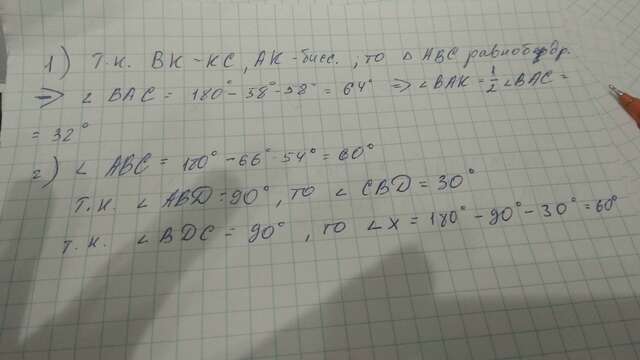 1) Т.к. ВК - КС, АК - бисс., то △ АВС равнобедр.
=> ∠ ВАС = 180° - 58° - 58° = 64° => ∠ВАК = 1/2 ∠ВАС =
= 32°
2) ∠ АВС = 180° - 66° - 54° = 60°
Т.к. ∠ АВD = 90°, то ∠ СВD = 30°
т.к. ∠ ВDС = 90°, то ∠Х = 180° - 90° - 30° = 60°